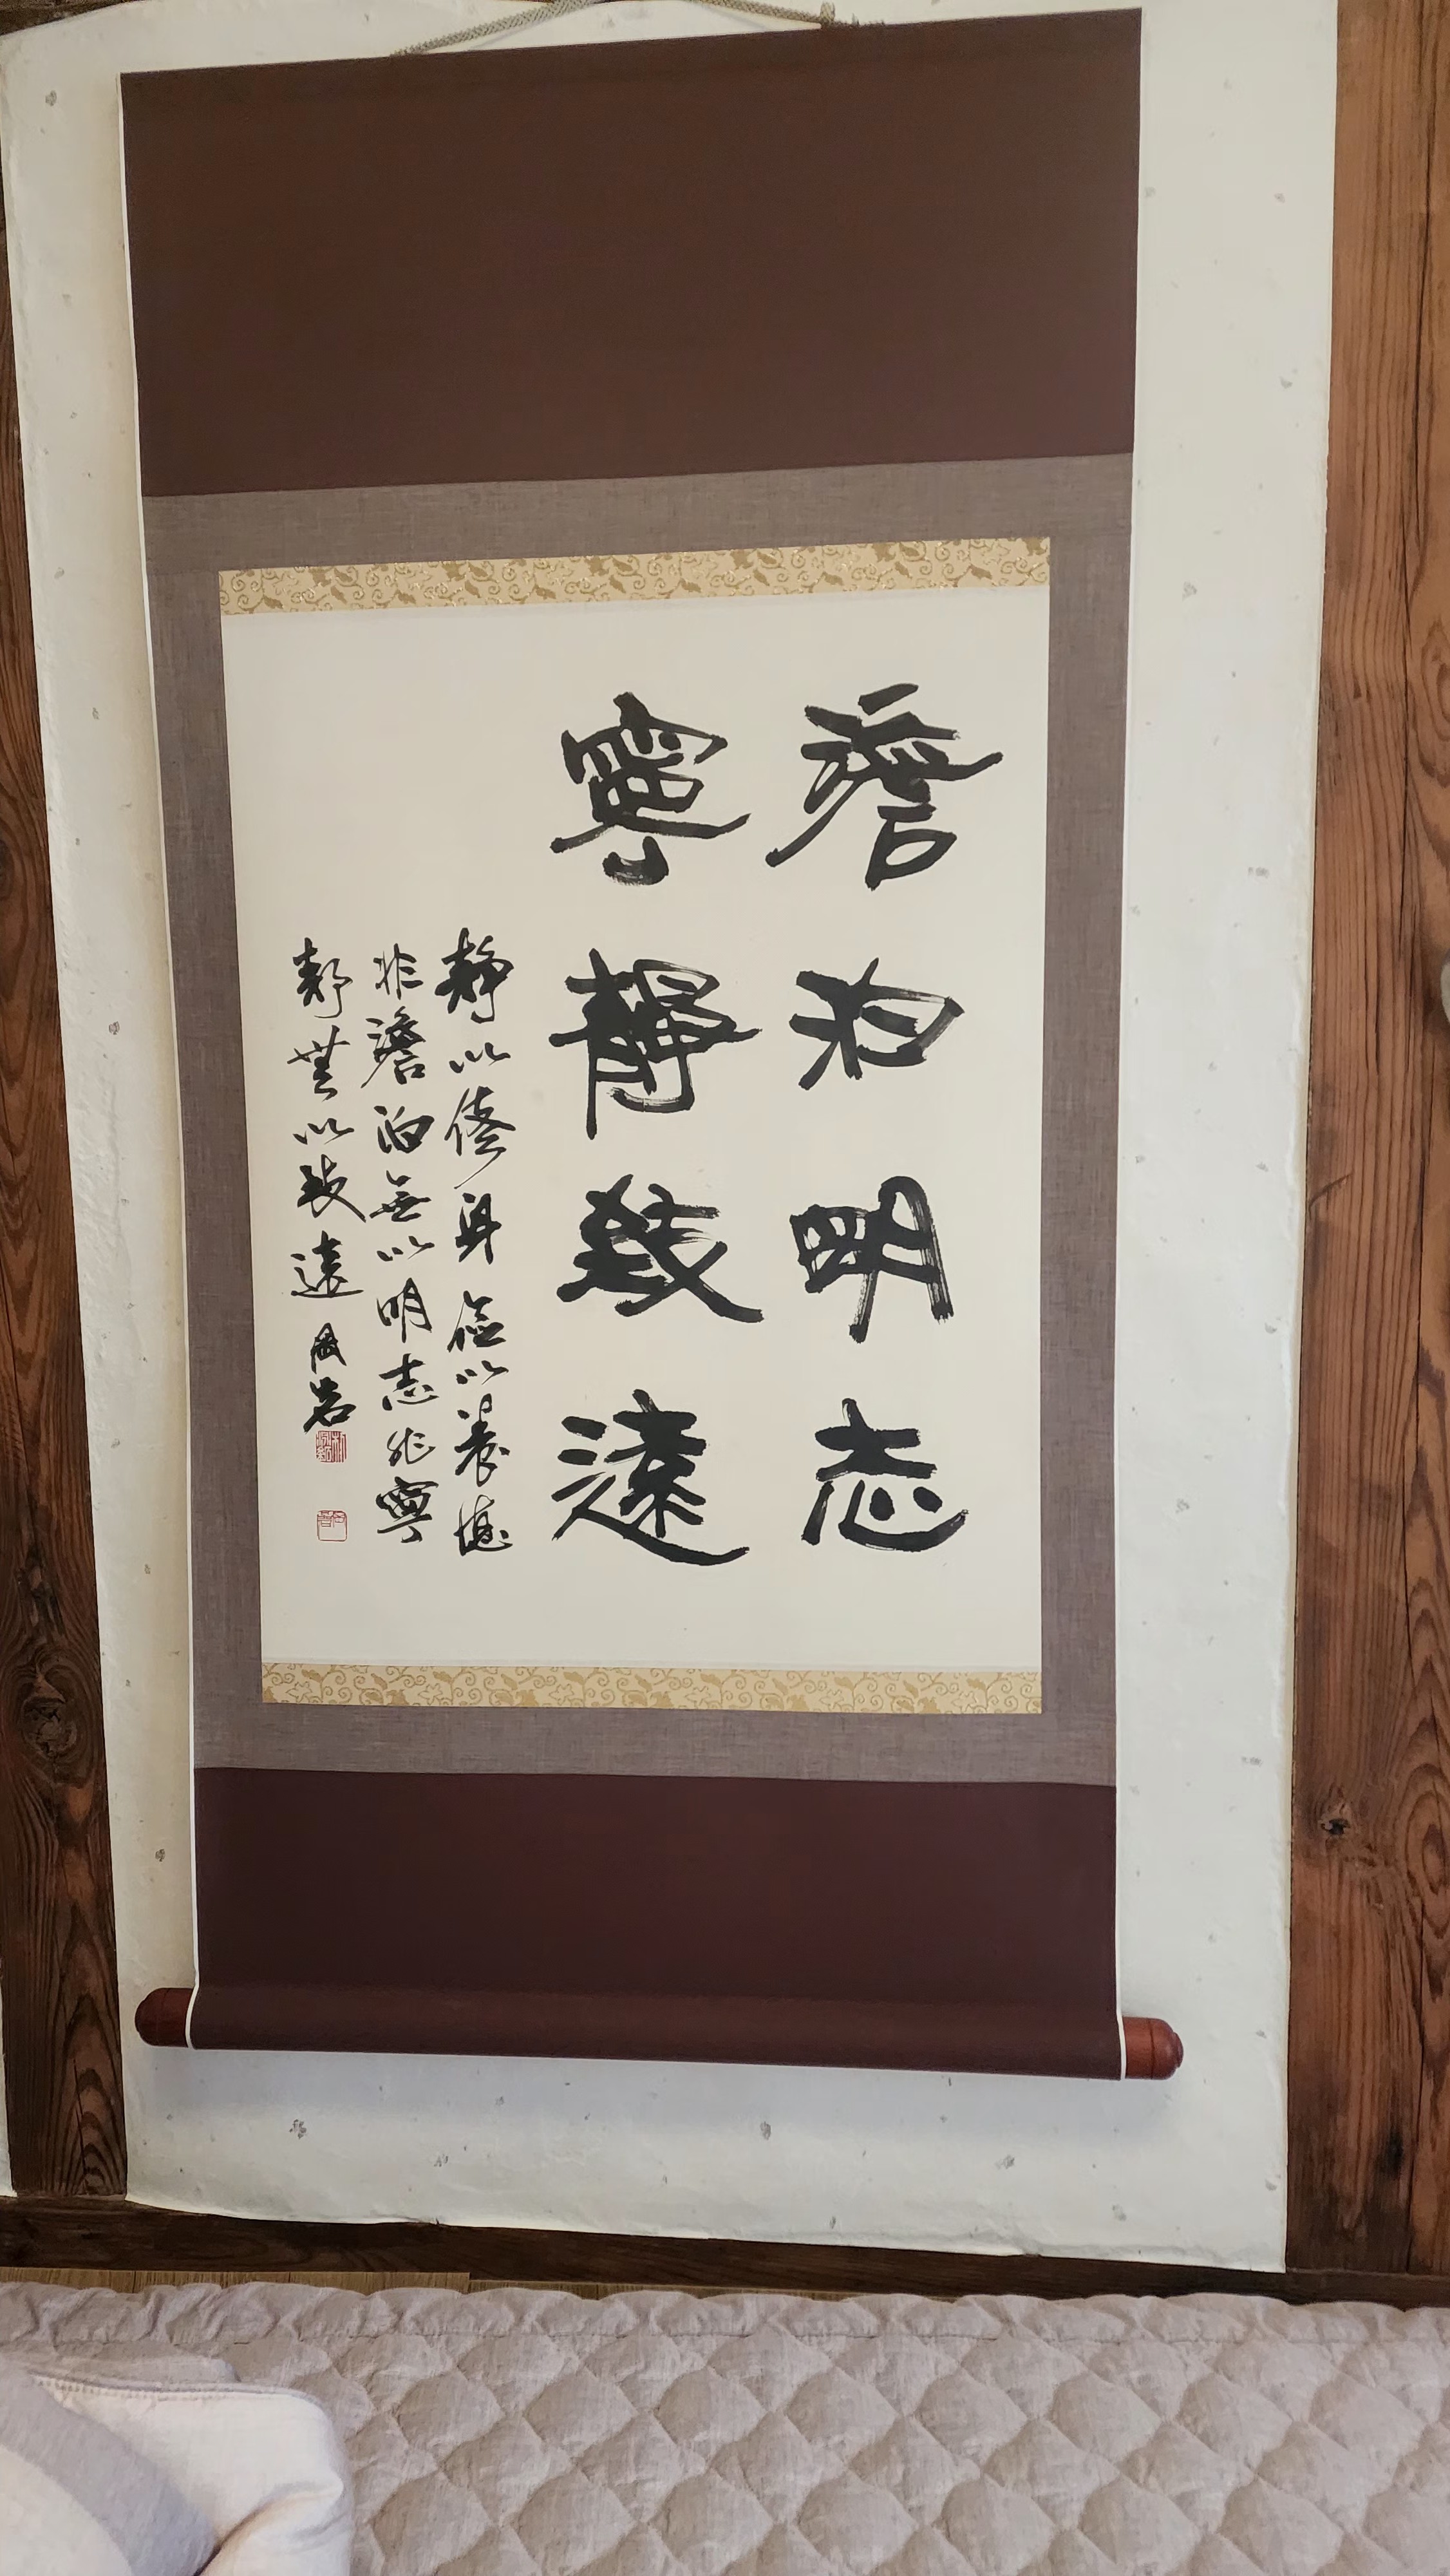 澹泊明志
寧靜致遠
靜以修身儉以養德
非澹泊無以明志非寧
靜無以致遠